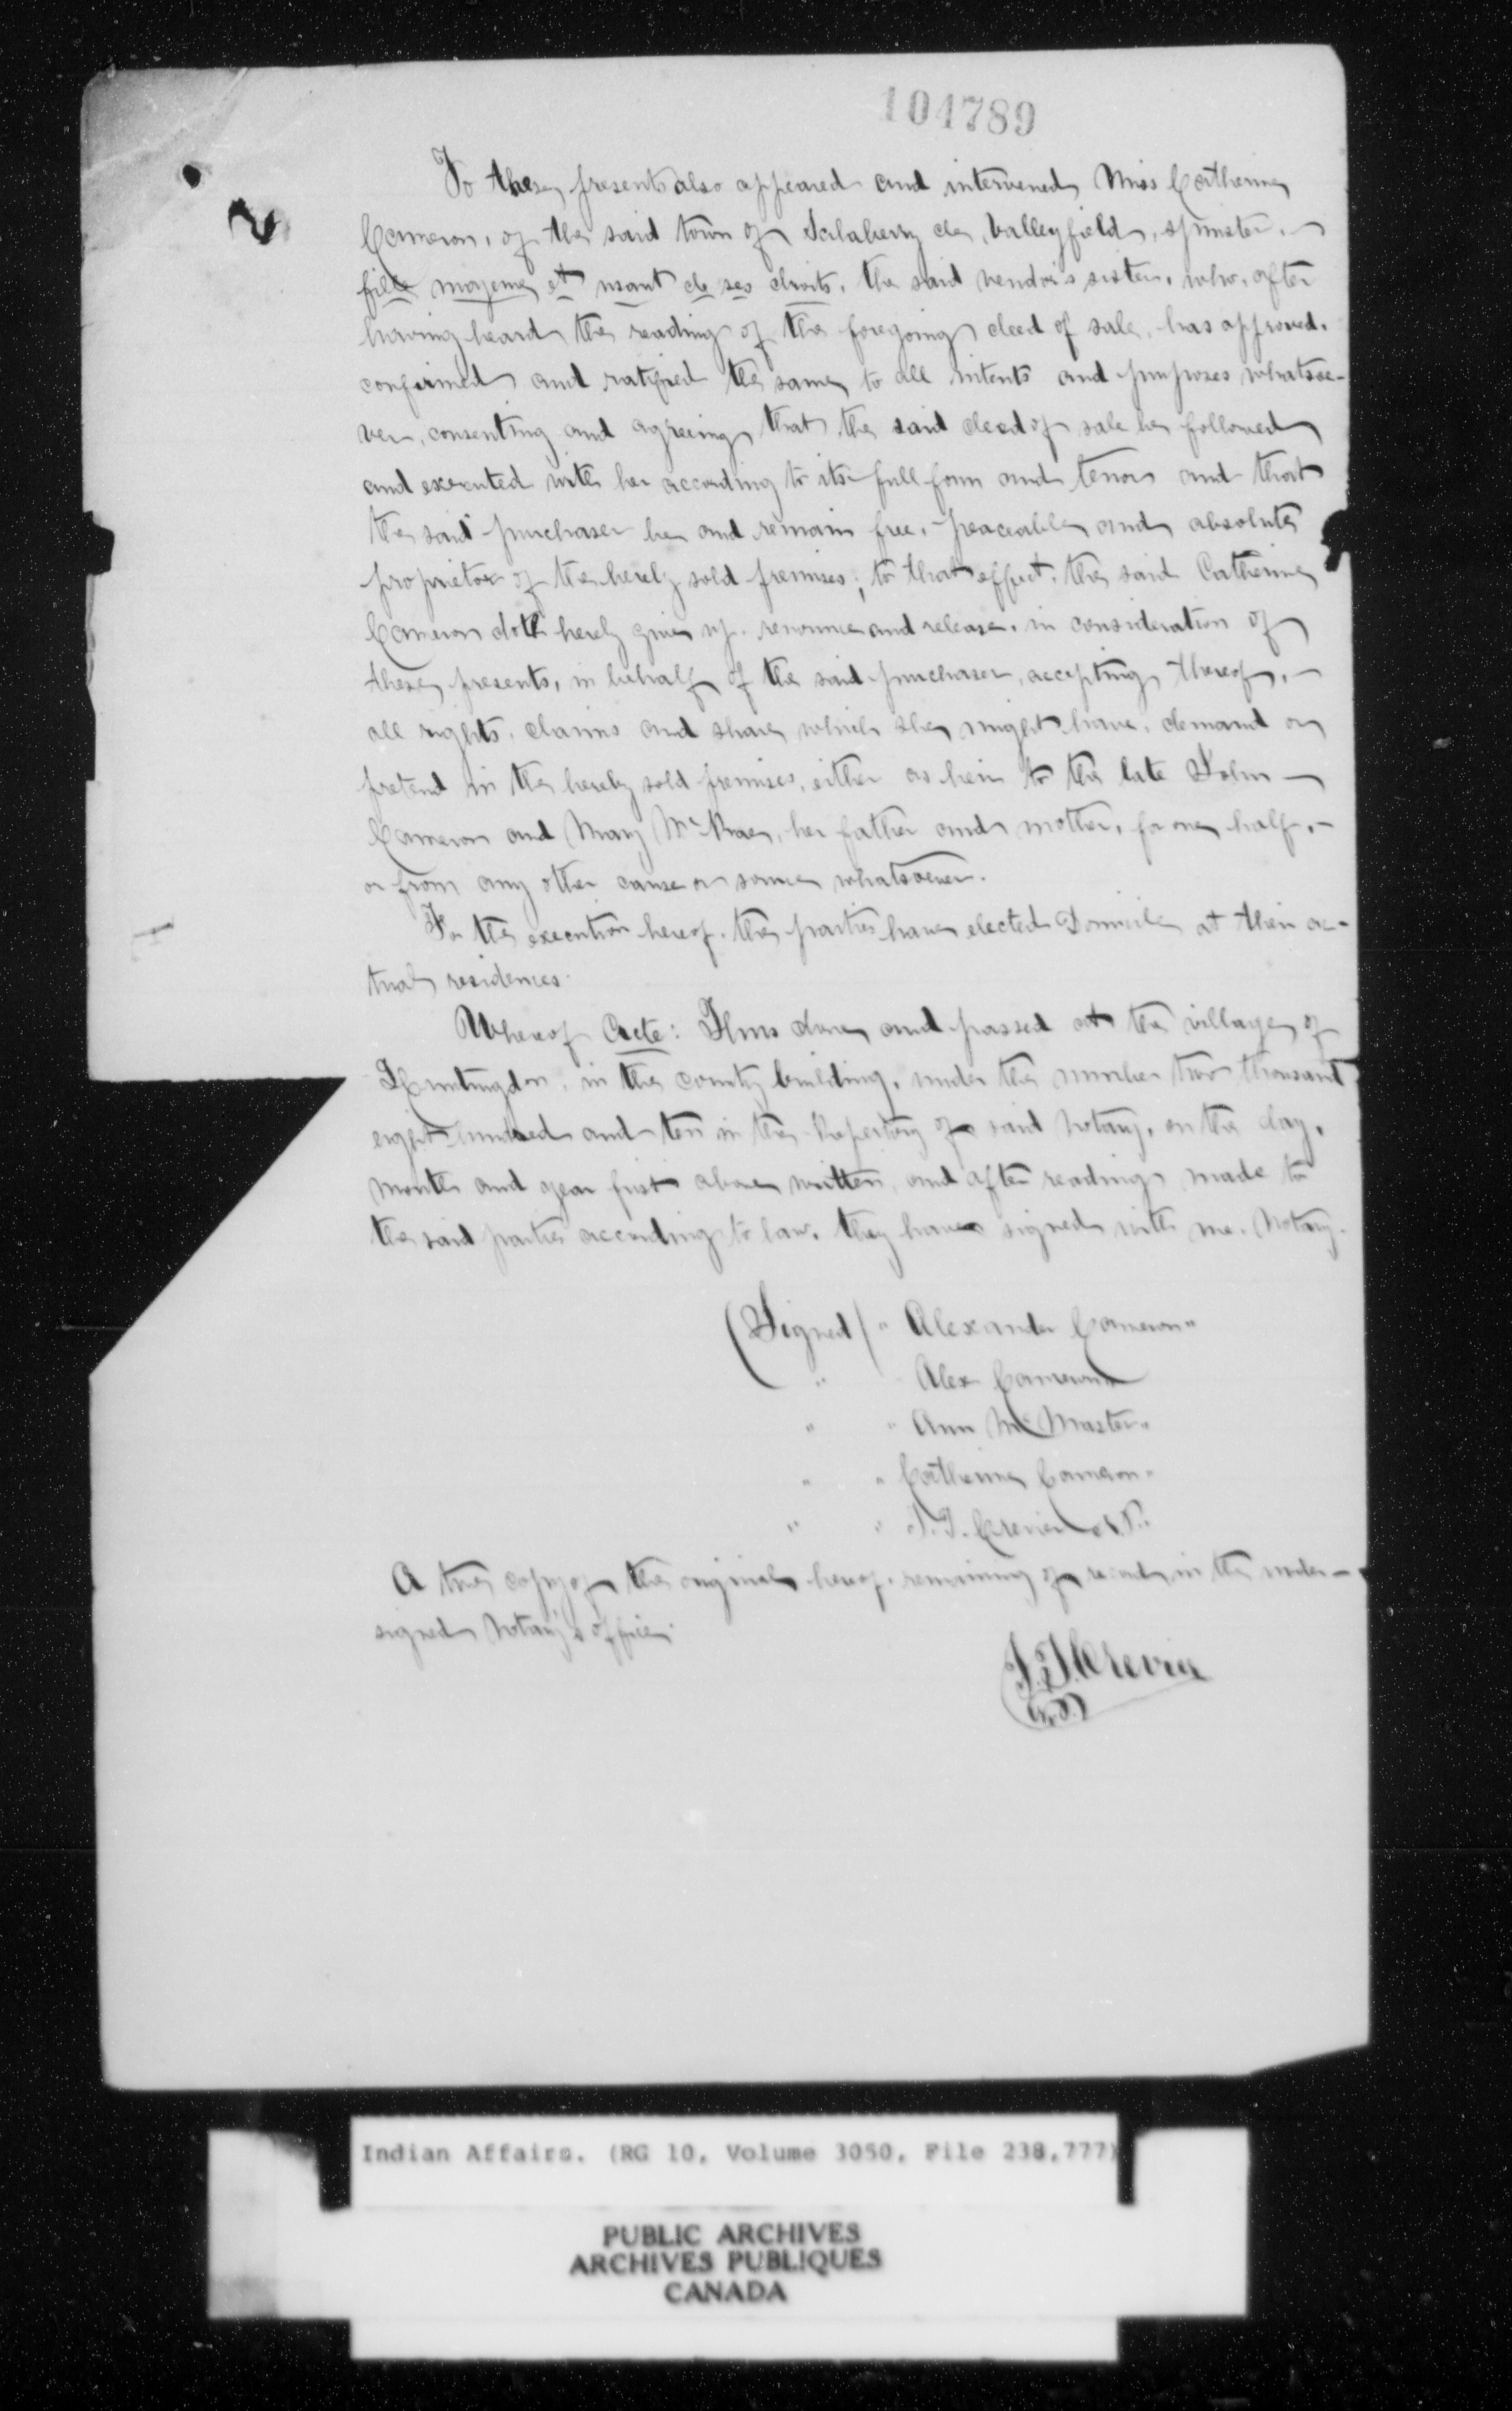 104789
To these presents also appeared and intervened Miss Catherine
Cameron, of the said town of Salaberry de Valleyfield, spinster,
fille majeure et usant de ses droits, the said vendor's sister, who, after
having heard the reading of the foregoing deed of sale, has approved,
confirmed and ratified the same to all intents and purposes whatsoe-
ver, consenting and agreeing that the said deed of sale be followed
and executed with her according to its full form and tenor and that
the said purchaser be and remain free, peaceable and absolute
proprietor of the hereby sold premises; to that effect, the said Catherine
Cameron doth hereby give up, renounce and release, in consideration of
these presents, in behalf of the said purchaser, accepting thereof, -
all rights, claims and share which she might have, demand or
pretend in the hereby sold premises, either as heir to the late John -
Cameron and Mary McRae, her father and mother, for one half, -
or from any other cause or source whatsoever.
For the execution hereof, the parties have elected Domicile at their ac-
tual residences.
Whereof Acte: Thus done and passed at the village of
Huntingdon, in the county building, under the number two thousand
eight hundred and ten in the Repertory of said Notary, on the day,
month and year first above written, and after reading made to
the said parties according to law, they have signed with me, Notary.
(Signed) " Alexander Cameron "
" Alex Cameron
" " Ann McMaster "
" " Catherine Cameron "
" " J. J. Crevier N.P. "
A true copy of the original hereof, remaining of record in the under-
signed Notary's office.
J. J. Crevier
N.P.
Indian Affairs. (RG 10, Volume 3050, File 238,777)
PUBLIC ARCHIVES
ARCHIVES PUBLIQUES
CANADA